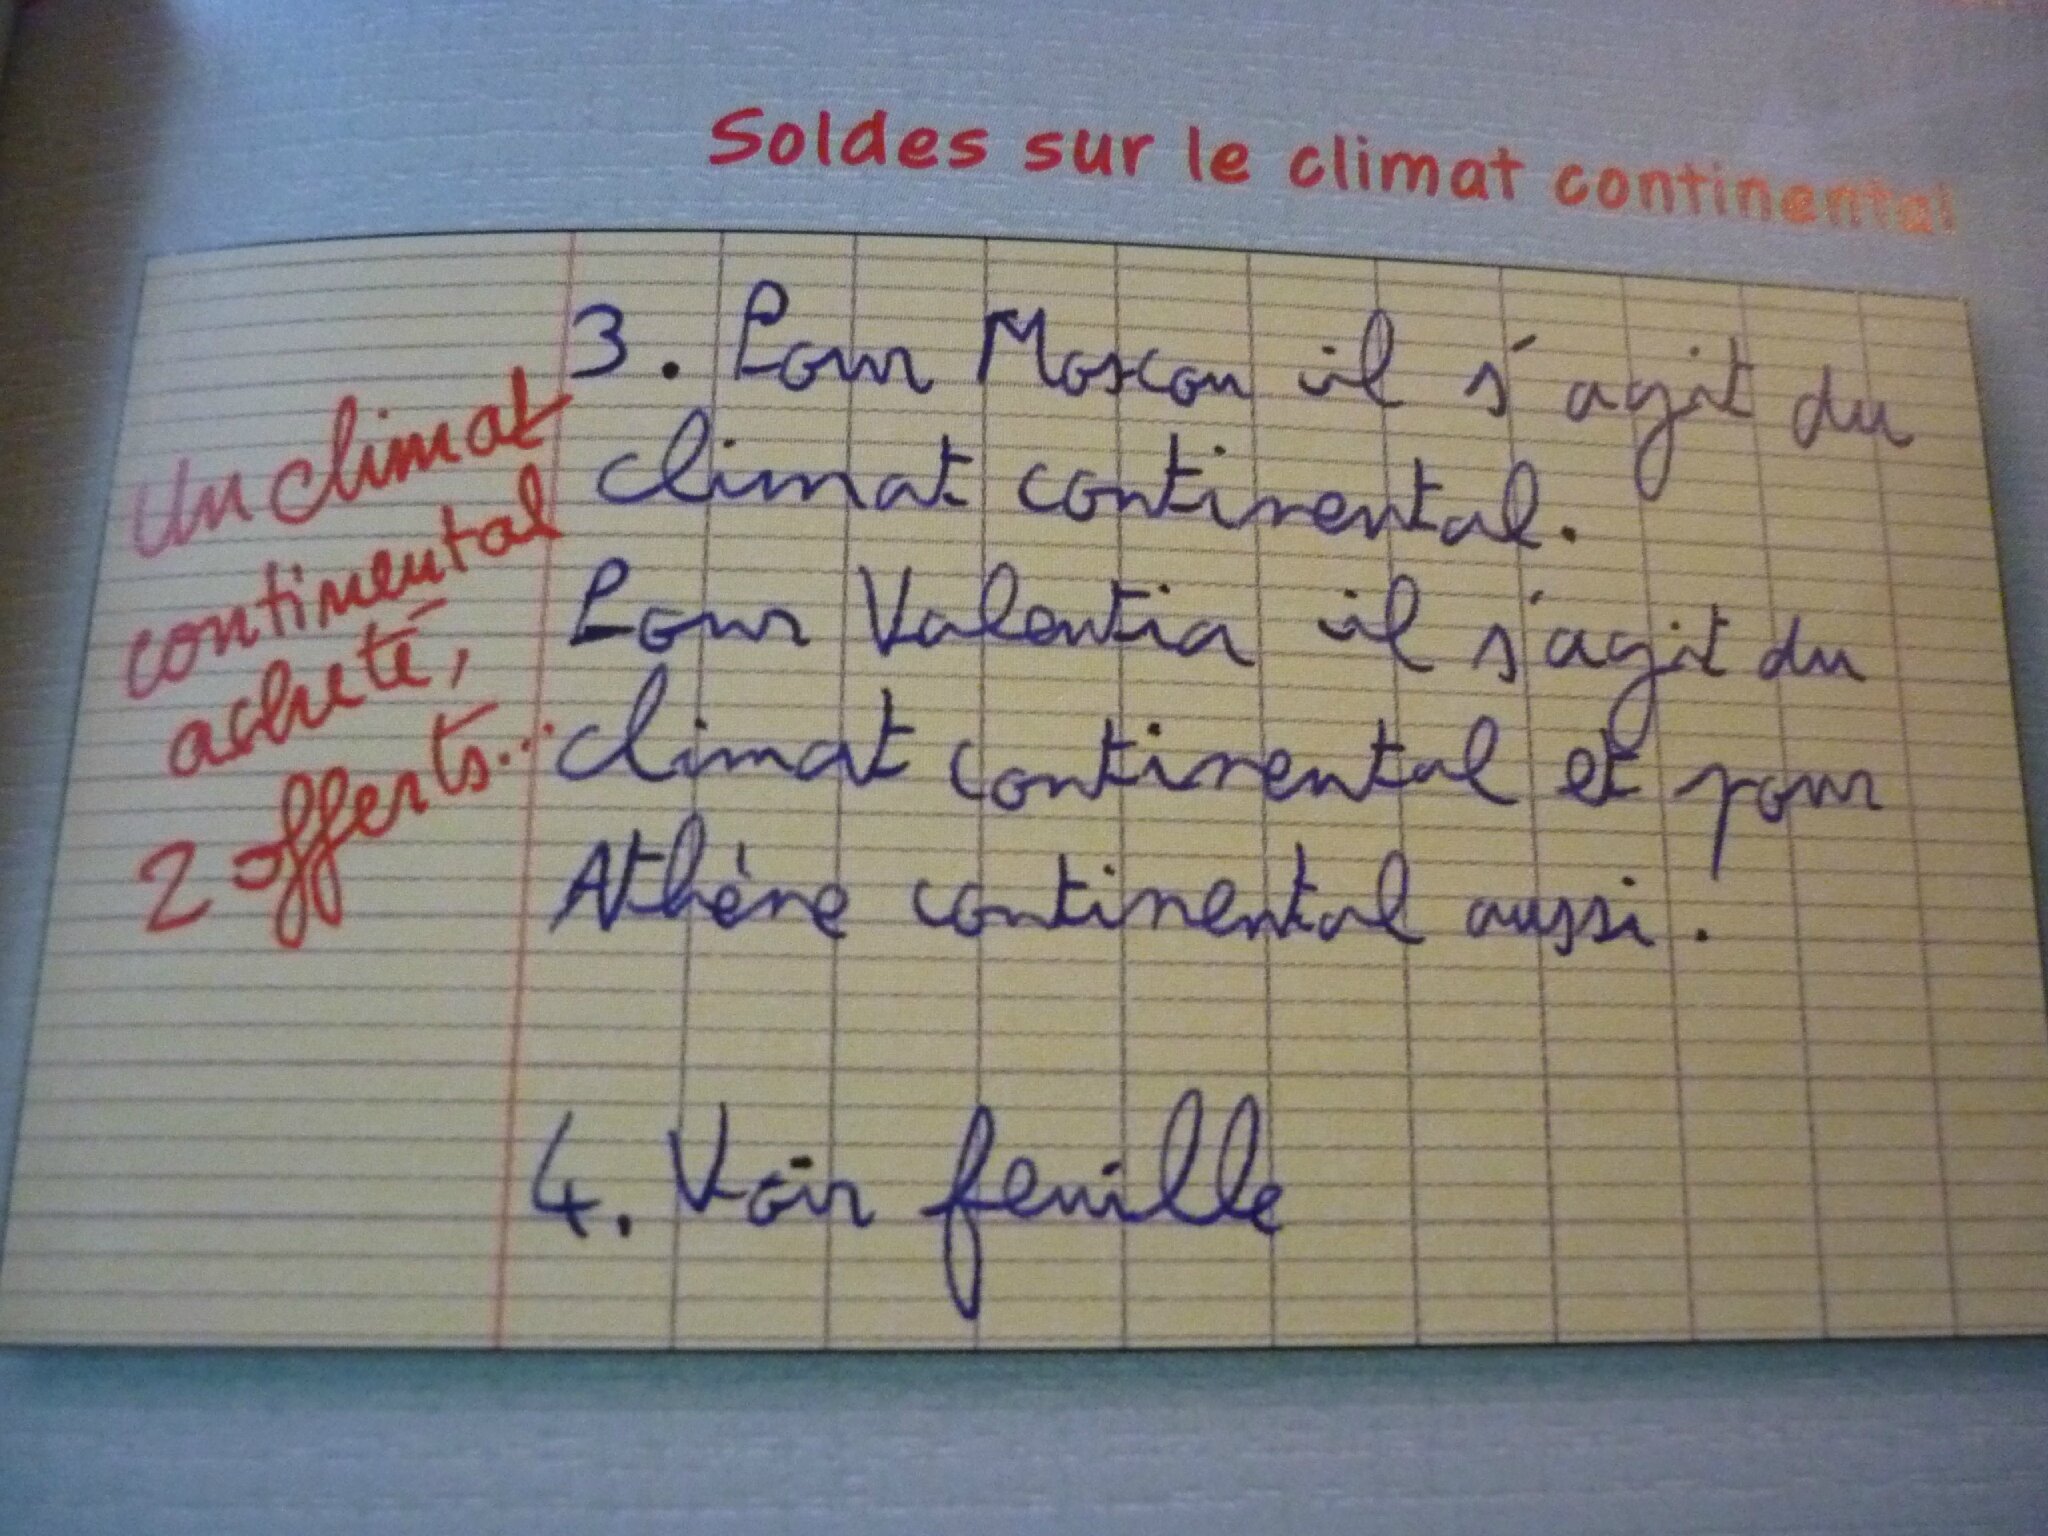 Soldes sur le climat continental
Un climat
continental
acheté,
2 offerts...
3. Pour Moscou il s'agit du
climat continental.
Pour Valentia il s'agit du
climat continental et pour
Athène continental aussi.
4. Voir feuille